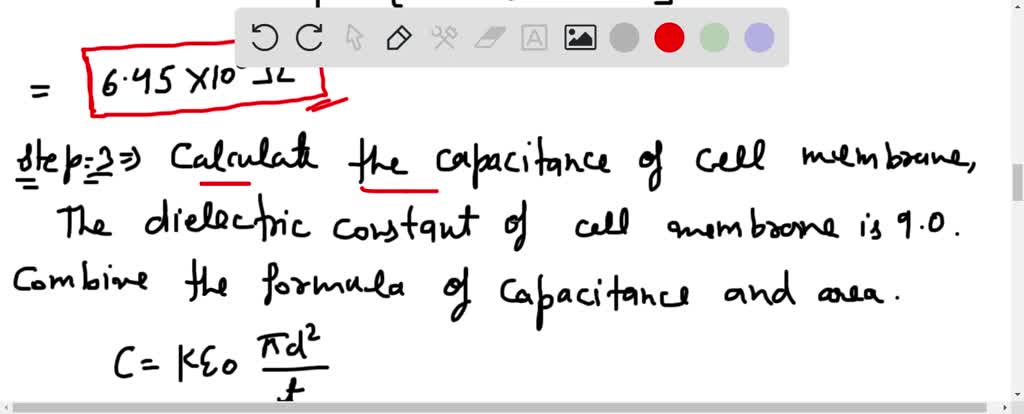 = 6.45 X10 Ω
Step-2 ⇒ Calculate the capacitance of cell membrane,
The dielectric constant of cell membrane is 9.0.
Combine the formula of capacitance and area.
C = Kε₀ πd²/t